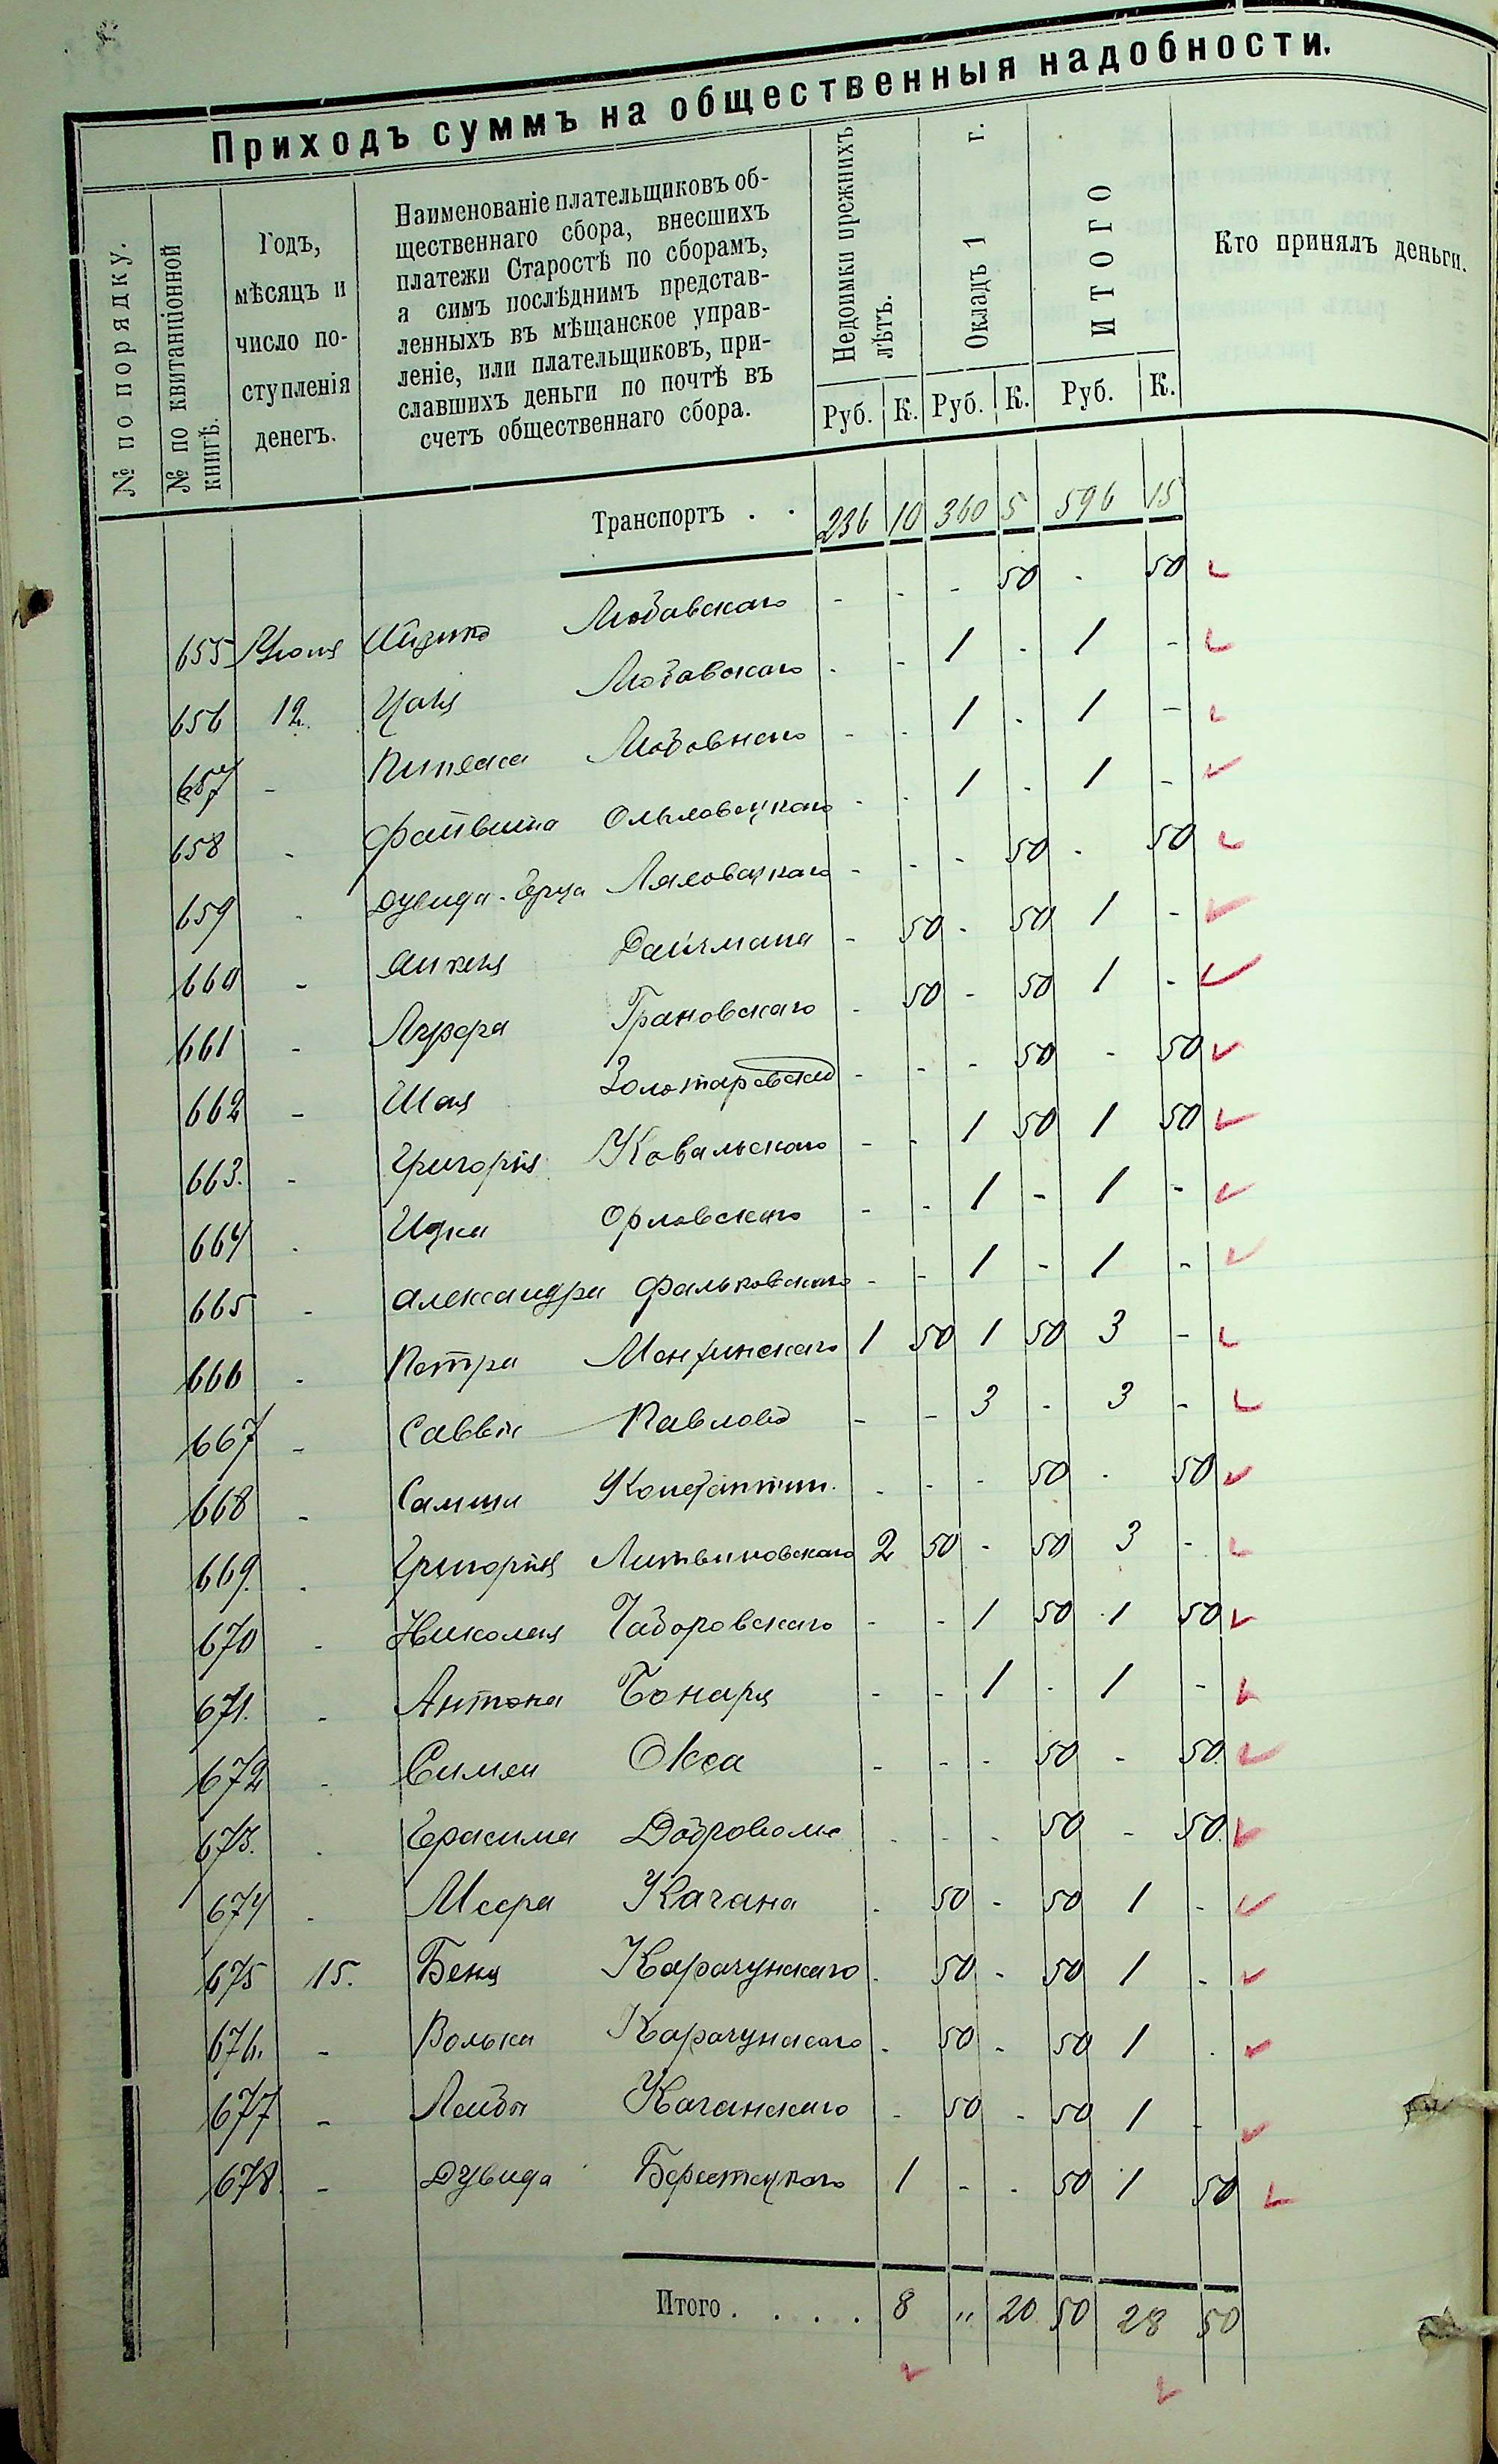 Приходъ суммъ на общественныя надобности.
№ по порядку.
№ по квитанціонной книгѣ.
Годъ,
мѣсяцъ и
число по-
ступленія
денегъ.
Наименованіе плательщиковъ об-
щественнаго сбора, внесшихъ
платежи Старостѣ по сборамъ,
а симъ послѣднимъ представ-
ленныхъ въ мѣщанское управ-
леніе, или плательщиковъ, при-
славшихъ деньги по почтѣ въ
счетъ общественнаго сбора.
Недоимки прежнихъ лѣтъ.
Окладъ 1 г.
ИТОГО
Кто принялъ деньги.
Руб. К. Руб. К. Руб. К.
Транспортъ . . 236 10 360 5 596 15
655 Іюня Любавскаго - - - 50 - 50
656 12. Любавскаго - - 1 - 1 -
657 - Пинхаса - - 1 - 1 -
658 - Файвиша - - 1 - 1 -
659 - Дувида-Герца - - - 50 - 50
660 - Анкеля Райчмана - 50 - 50 1 -
661 - Лузера Грановскаго - 50 - 50 1 -
662 - Шая - - - 50 - 50
663. - Григорія Ковальскаго - - 1 50 1 50
664 - Ицка Орловскаго - - 1 - 1 -
665 - Александра Фальковскаго - - 1 - 1 -
666 - Петра 1 50 1 50 3 -
667 - Саввы Павлов - - 3 - 3 -
668 - Константин. - - - 50 - 50
669. - Григорія Литвиновскаго 2 50 - 50 3 -
670 - Николая Чабаровскаго - - 1 50 1 50
671. - Антона Бонаря - - 1 - 1 -
672 - Окса - - - 50 - 50
673. - Герасима Доброволь - - - 50 - 50.
674 - Меера Качана - 50 - 50 1 -
675 15. Беня Карачунскаго - 50 - 50 1 -
676. - Волька Карачунскаго - 50 - 50 1 -
677 - Лейбы Качанскаго - 50 - 50 1 -
678. - Дувида Берестецкаго 1 - - 50 1 50
Итого . . . . 8 " 20 50 28 50